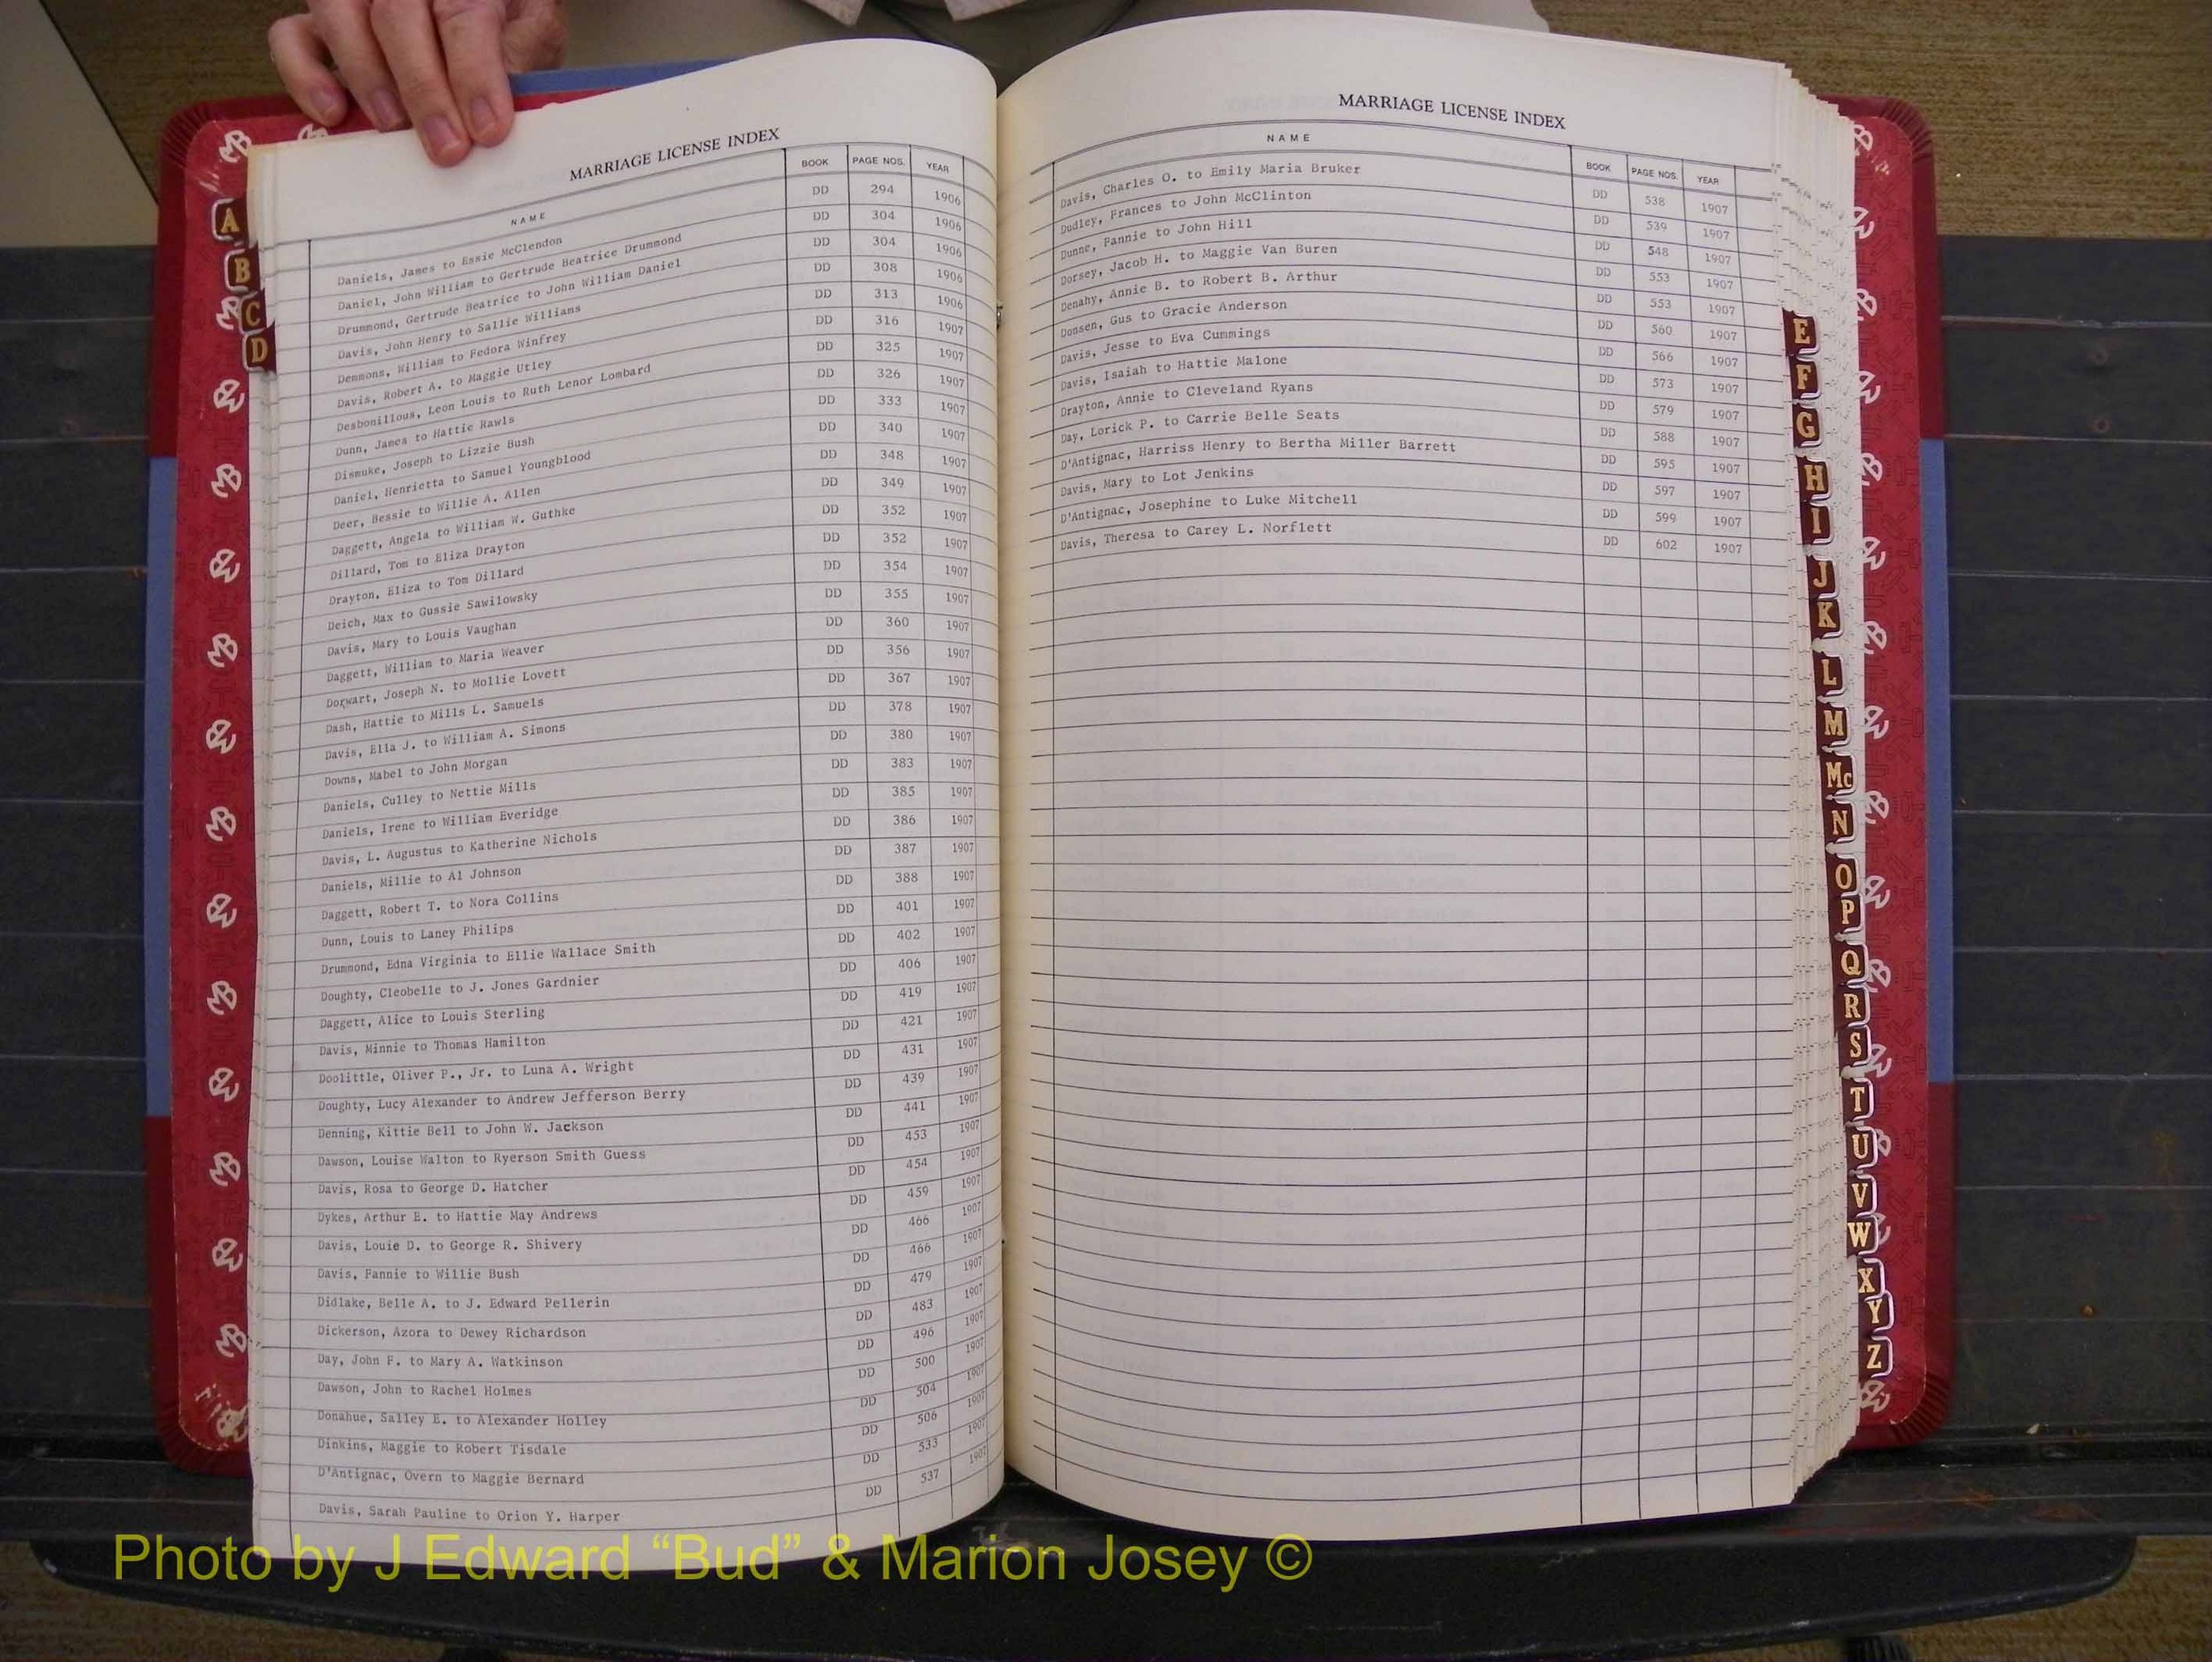 MARRIAGE LICENSE INDEX
NAME BOOK PAGE NOS. YEAR
Daniels, James to Essie McClendon DD 294 1906
Daniel, John William to Gertrude Beatrice Drummond DD 304 1906
Drummond, Gertrude Beatrice to John William Daniel DD 304 1906
Davis, John Henry to Sallie Williams DD 308 1906
Demmons, William to Fedora Winfrey DD 313 1906
Davis, Robert A. to Maggie Utley DD 316 1907
Desbonillous, Leon Louis to Ruth Lenor Lombard DD 325 1907
Dunn, James to Hattie Rawls DD 326 1907
Dismuke, Joseph to Lizzie Bush DD 333 1907
Daniel, Henrietta to Samuel Youngblood DD 340 1907
Deer, Bessie to Willie A. Allen DD 348 1907
Daggett, Angela to William W. Guthke DD 349 1907
Dillard, Tom to Eliza Drayton DD 352 1907
Drayton, Eliza to Tom Dillard DD 352 1907
Deich, Max to Gussie Sawilowsky DD 354 1907
Davis, Mary to Louis Vaughan DD 355 1907
Daggett, William to Maria Weaver DD 360 1907
Dorwart, Joseph N. to Mollie Lovett DD 356 1907
Dash, Hattie to Mills L. Samuels DD 367 1907
Davis, Ella J. to William A. Simons DD 378 1907
Downs, Mabel to John Morgan DD 380 1907
Daniels, Culley to Nettie Mills DD 383 1907
Daniels, Irene to William Everidge DD 385 1907
Davis, L. Augustus to Katherine Nichols DD 386 1907
Daniels, Millie to Al Johnson DD 387 1907
Daggett, Robert T. to Nora Collins DD 388 1907
Dunn, Louis to Laney Philips DD 401 1907
Drummond, Edna Virginia to Ellie Wallace Smith DD 402 1907
Doughty, Cleobelle to J. Jones Gardnier DD 406 1907
Daggett, Alice to Louis Sterling DD 419 1907
Davis, Minnie to Thomas Hamilton DD 421 1907
Doolittle, Oliver P., Jr. to Luna A. Wright DD 431 1907
Doughty, Lucy Alexander to Andrew Jefferson Berry DD 439 1907
Denning, Kittie Bell to John W. Jackson DD 441 1907
Dawson, Louise Walton to Ryerson Smith Guess DD 453 1907
Davis, Rosa to George D. Hatcher DD 454 1907
Dykes, Arthur E. to Hattie May Andrews DD 459 1907
Davis, Louie D. to George R. Shivery DD 466 1907
Davis, Fannie to Willie Bush DD 466 1907
Didlake, Belle A. to J. Edward Pellerin DD 479 1907
Dickerson, Azora to Dewey Richardson DD 483 1907
Day, John F. to Mary A. Watkinson DD 496 1907
Dawson, John to Rachel Holmes DD 500 1907
Donahue, Salley E. to Alexander Holley DD 504 1907
Dinkins, Maggie to Robert Tisdale DD 506 1907
D'Antignac, Overn to Maggie Bernard DD 533 1907
Davis, Sarah Pauline to Orion Y. Harper DD 537 1907
MARRIAGE LICENSE INDEX
NAME BOOK PAGE NOS. YEAR
Davis, Charles O. to Emily Maria Bruker DD 538 1907
Dudley, Frances to John McClinton DD 539 1907
Dunne, Fannie to John Hill DD 548 1907
Dorsey, Jacob H. to Maggie Van Buren DD 553 1907
Denahy, Annie B. to Robert B. Arthur DD 553 1907
Donsen, Gus to Gracie Anderson DD 560 1907
Davis, Jesse to Eva Cummings DD 566 1907
Davis, Isaiah to Hattie Malone DD 573 1907
Drayton, Annie to Cleveland Ryans DD 579 1907
Day, Lorick P. to Carrie Belle Seats DD 588 1907
D'Antignac, Harriss Henry to Bertha Miller Barrett DD 595 1907
Davis, Mary to Lot Jenkins DD 597 1907
D'Antignac, Josephine to Luke Mitchell DD 599 1907
Davis, Theresa to Carey L. Norflett DD 602 1907
A
B
C
D
E
F
G
H
I
J
K
L
M
Mc
N
O
P
Q
R
S
T
U
V
W
X
Y
Z
Photo by J Edward “Bud” & Marion Josey ©